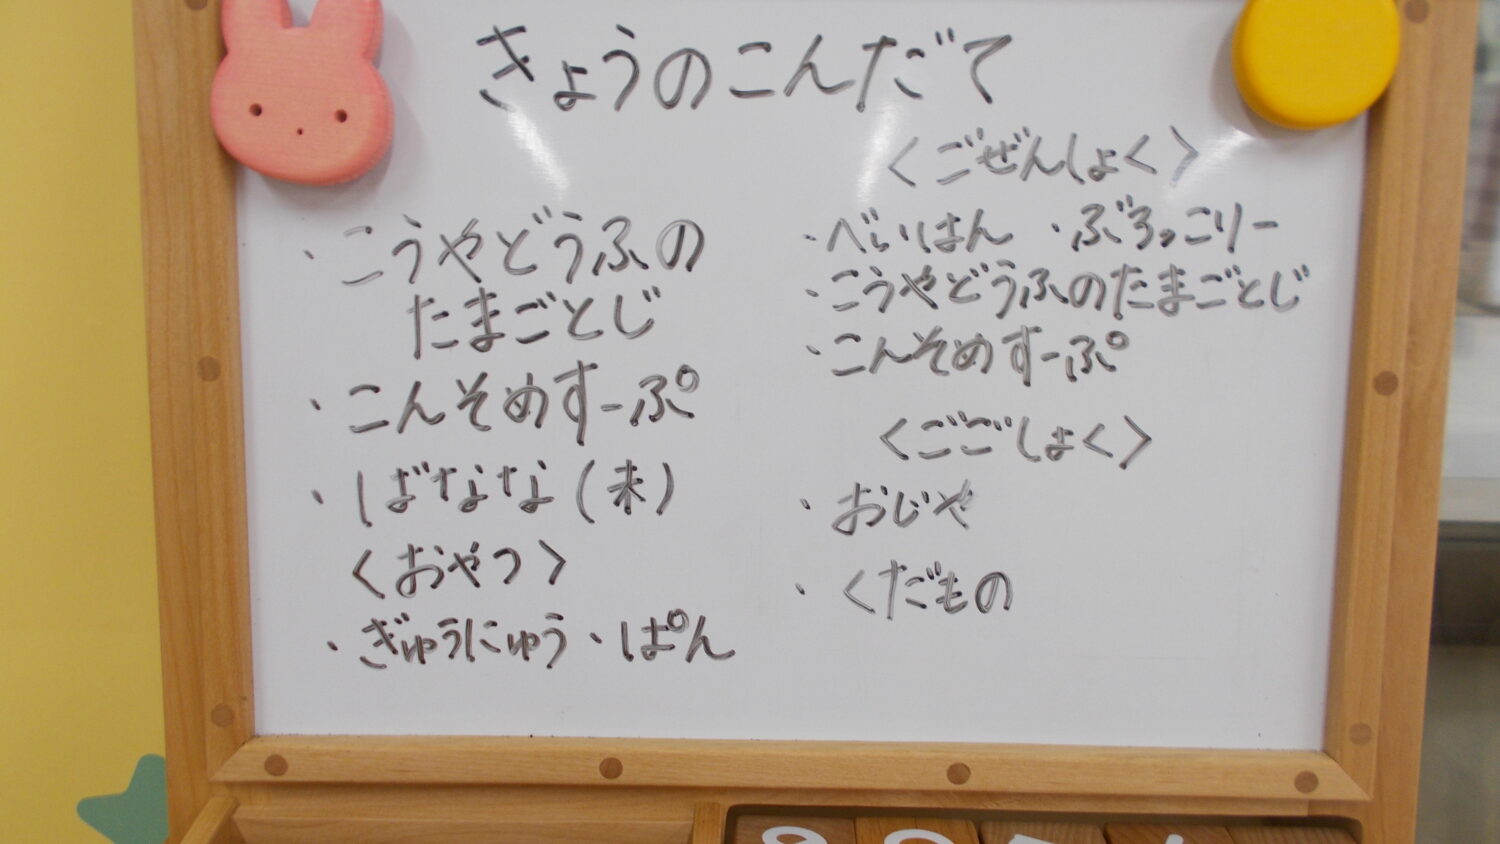 きょうのこんだて
・こうやどうふの
たまごとじ
・こんそめすーぷ
・ばなな(未)
〈おやつ〉
・ぎゅうにゅう・ぱん
〈ごぜんしょく〉
・べいはん ・ぶろっこりー
・こうやどうふのたまごとじ
・こんそめすーぷ
〈ごごしょく〉
・おじや
・くだもの